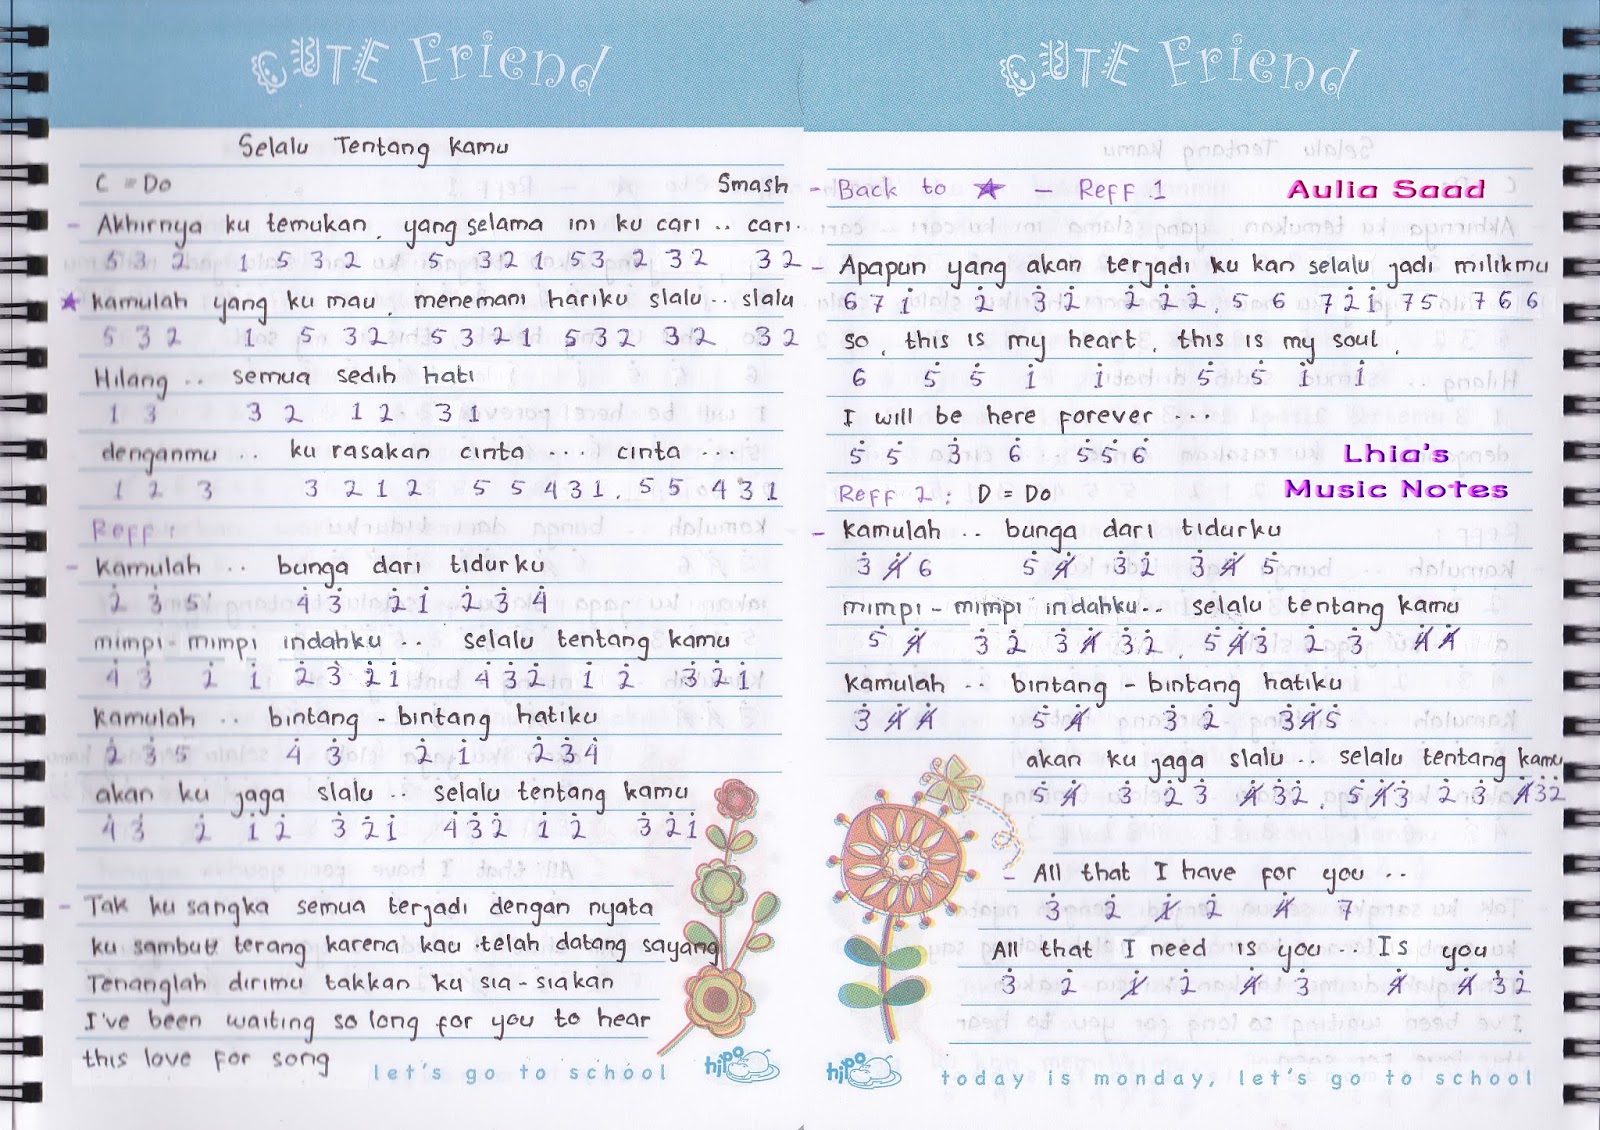 CUTE Friend
Selalu Tentang Kamu
C = Do Smash
- Akhirnya ku temukan, yang selama ini ku cari .. cari.
5 3 2 1 5 3 2 5 3 2 1 5 3 2 3 2 3 2
★ kamulah yang ku mau, menemani hariku slalu .. slalu
5 3 2 1 5 3 2 5 3 2 1 5 3 2 3 2 3 2
Hilang .. semua sedih hati
1 3 3 2 1 2 3 1
denganmu .. ku rasakan cinta ... cinta ...
1 2 3 3 2 1 2 5 5 4 3 1 . 5 5 4 3 1
Reff :
- Kamulah .. bunga dari tidurku
2̇ 3̇ 5̇ 4̇ 3̇ 2̇ 1̇ 2̇ 3̇ 4̇
mimpi - mimpi indahku .. selalu tentang kamu
4̇ 3̇ 2̇ 1̇ 2̇ 3̇ 2̇ 1̇ 4̇ 3̇ 2̇ 1̇ 2̇ 3̇ 2̇ 1̇
kamulah .. bintang - bintang hatiku
2̇ 3̇ 5̇ 4̇ 3̇ 2̇ 1̇ 2̇ 3̇ 4̇
akan ku jaga slalu .. selalu tentang kamu
4̇ 3̇ 2̇ 1̇ 2̇ 3̇ 2̇ 1̇ 4̇ 3̇ 2̇ 1̇ 2̇ 3̇ 2̇ 1̇
- Tak ku sangka semua terjadi dengan nyata
ku sambut terang karena kau telah datang sayang
Tenanglah dirimu takkan ku sia - siakan
I've been waiting so long for you to hear
this love for song
let's go to school hipo
CUTE Friend
- Back to ★ - Reff .1 Aulia Saad
- Apapun yang akan terjadi ku kan selalu jadi milikmu
6 7 1̇ 2̇ 3̇ 2̇ 2̇ 2̇ 2̇ . 5 6 7 2̇ 1̇ 7 5 7 6 6
so, this is my heart, this is my soul,
6 5̇ 5̇ 1̇ 1̇ 5̇ 5̇ 1̇ 1̇
I will be here forever ...
5̇ 5̇ 3̇ 6̇ 5̇ 5̇ 6̇ Lhia's
Reff 2 : D = Do Music Notes
- kamulah .. bunga dari tidurku
3̇ 4̸̇ 6 5̇ 4̸̇ 3̇ 2̇ 3̇ 4̸̇ 5̇
mimpi - mimpi indahku .. selalu tentang kamu
5̇ 4̸̇ 3̇ 2̇ 3̇ 4̸̇ 3̇ 2̇ . 5̇ 4̸̇ 3̇ 2̇ 3̇ 4̸̇ 4̸̇
kamulah .. bintang - bintang hatiku
3̇ 4̸̇ 4̸̇ 5̇ 4̸̇ 3̇ 2̇ 3̇ 4̸̇ 5̇
akan ku jaga slalu .. selalu tentang kamu
5̇ 4̸̇ 3̇ 2̇ 3̇ 4̸̇ 3̇ 2̇ . 5̇ 4̸̇ 3̇ 2̇ 3̇ 4̸̇ 3̇ 2̇
- All that I have for you ..
3̇ 2̇ 1̸̇ 2̇ 4̸̇ 7̇
All that I need is you .. Is you
3̇ 2̇ 1̸̇ 2̇ 4̸̇ 3̇ 4̸̇ 4̸̇ 3̇ 2̇
hipo today is monday, let's go to school